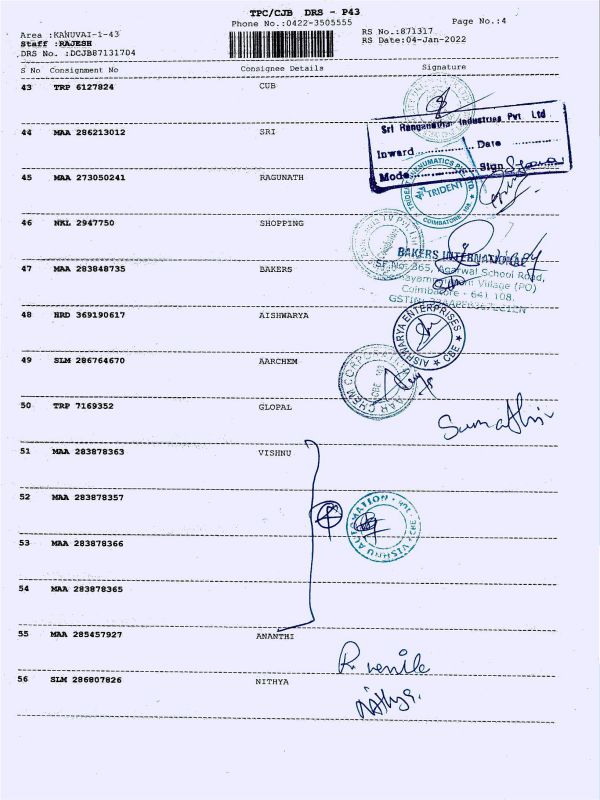 TPC/CJB DRS - P43
Phone No.:0422-3505555
Page No.:4
Area :KANUVAI-1-43
RS No.:871317
Staff :RAJESH
RS Date:04-Jan-2022
DRS No. :DCJB87131704
S No Consignment No Consignee Details Signature
43 TRP 6127824 CUB
Sri Ranganathar Industries Pvt Ltd
44 MAA 286213012 SRI
Inward Date
Mode Sign
45 MAA 273050241 RAGUNATH
TRIDENT PNEUMATICS PVT. LTD.
TRIDENT
COIMBATORE
46 NKL 2947750 SHOPPING
BAKERS INTERNATIONAL
SF.No: 365, Agarwal School Road,
47 MAA 283848735 BAKERS
Village (PO)
Coimbatore - 641 108.
GSTIN
48 NRD 369190617 AISHWARYA
AISHWARYA ENTERPRISES
CBE
49 SLM 286764670 AARCHEM
AAR CHEM CORPORATION
CBE
50 TRP 7169352 GLOPAL
Sumathi
51 MAA 283878363 VISHNU
52 MAA 283878357
VISHNU AUTOMATION
CBE
53 MAA 283878366
54 MAA 283878365
55 MAA 285457927 ANANTHI
R.
56 SLM 286807826 NITHYA
Nithya.